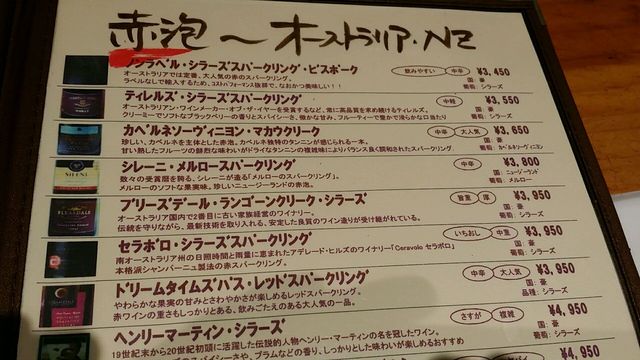 赤泡～オーストラリア・NZ
ノンラベル・シラーズスパークリング・ビスポーク
飲みやすい 中辛 ¥3,450
オーストラリアでは定番、大人気の赤のスパークリング。
国：豪
ラベルなしで輸入するため、コストパフォーマンス抜群で、なおかつ美味しい！！
葡萄：シラーズ
ティレルズ・シラーズスパークリング
中軽 ¥3,550
オーストラリアン・ワインメーカー・オブ・ザ・イヤーを受賞するなど、常に高品質を求め続けるティレルズ。
国：豪
クリーミーでソフトなブラックベリーの香りとスパイシーさ、微かな甘み、フルーティーで豊かで滑らかな口当たり
葡萄：シラーズ
カベルネソーヴィニヨン・マカウクリーク
中辛 大人気 ¥3,650
珍しい、カベルネを主体とした赤泡。カベルネ独特のタンニンが感じられる一本。
国：豪
甘い熟したフルーツの鮮烈な味わいがドライなタンニンの複雑味によりバランス良く調和されたスパークリング
葡萄：カベルネソーヴィニヨン
シレーニ・メルロースパークリング
中辛 ¥3,800
数々の受賞暦を誇る、シレーニが造る「メルローのスパークリング」。
国：ニュージーランド
メルローのソフトな果実味。珍しいニュージーランドの赤泡。
葡萄：メルロー
ブリーズデール・ランゴーンクリーク・シラーズ
旨重 厚 ¥3,950
オーストラリア国内で2番目に古い家族経営のワイナリー。
国：豪
伝統を守りながら、最新技術を取り入れる、安定した良質のワイン造りが受け継がれている。
葡萄：シラーズ
セラボロ・シラーズスパークリング
いちおし 中重 ¥3,950
南オーストラリア州の日照時間と雨量に恵まれたアデレード・ヒルズのワイナリー「Ceravolo セラボロ」
国：豪
本格派シャンパーニュ製法の赤スパークリング。
葡萄：シラーズ
ドリームタイムズパス・レッドスパークリング
中辛 大人気 ¥3,950
やわらかな果実の甘みとさわやかさが楽しめるレッドスパークリング。
国：豪
赤ワインの重さもしっかりとある、飲みごたえのある大人気の一品。
品種：シラーズ
ヘンリーマーティン・シラーズ
さすが 複雑 ¥4,950
19世紀末から20世紀初頭に活躍した伝説的人物ヘンリー・マーティンの名を冠したワイン。
国：豪
スパイシーさや、プラムなどの香り、しっかりとした味わいが楽しめるおすすめ
葡萄：シラーズ
¥4,950